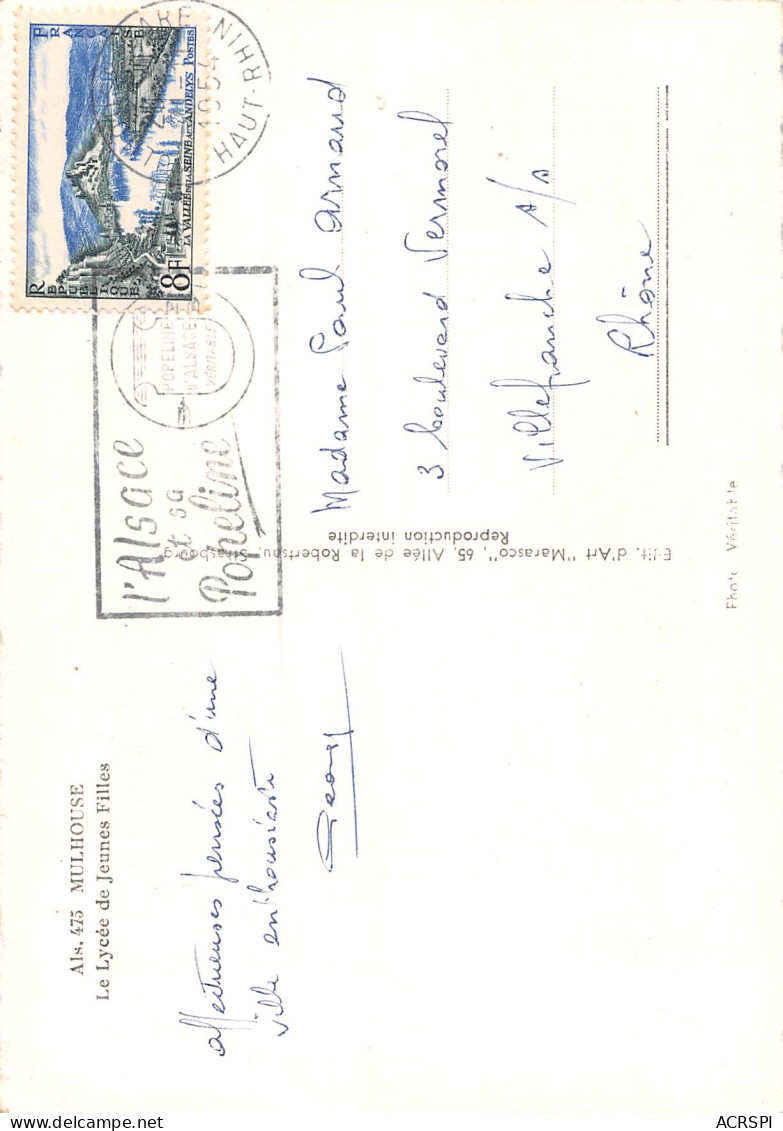 Als. 475 MULHOUSE
Le Lycée de Jeunes Filles
affectueuses pensées d'une
ville enthousiaste
l'Alsace
et sa
Popeline
POPELINE
D'ALSACE
VÉRITABLE
RÉPUBLIQUE
FRANÇAISE
8F
LA VALLÉE DE LA SEINE AUX ANDELYS POSTES
GARE
1954
HAUT-RHIN
Madame Paul Armand
3 boulevard Vermorel
Villefranche s/s
Rhône
Edit. d'Art "Marasco", 65, Allée de la Robertsau, Strasbourg
Reproduction interdite
Photo Véritable
delcampe.net
ACRSPI